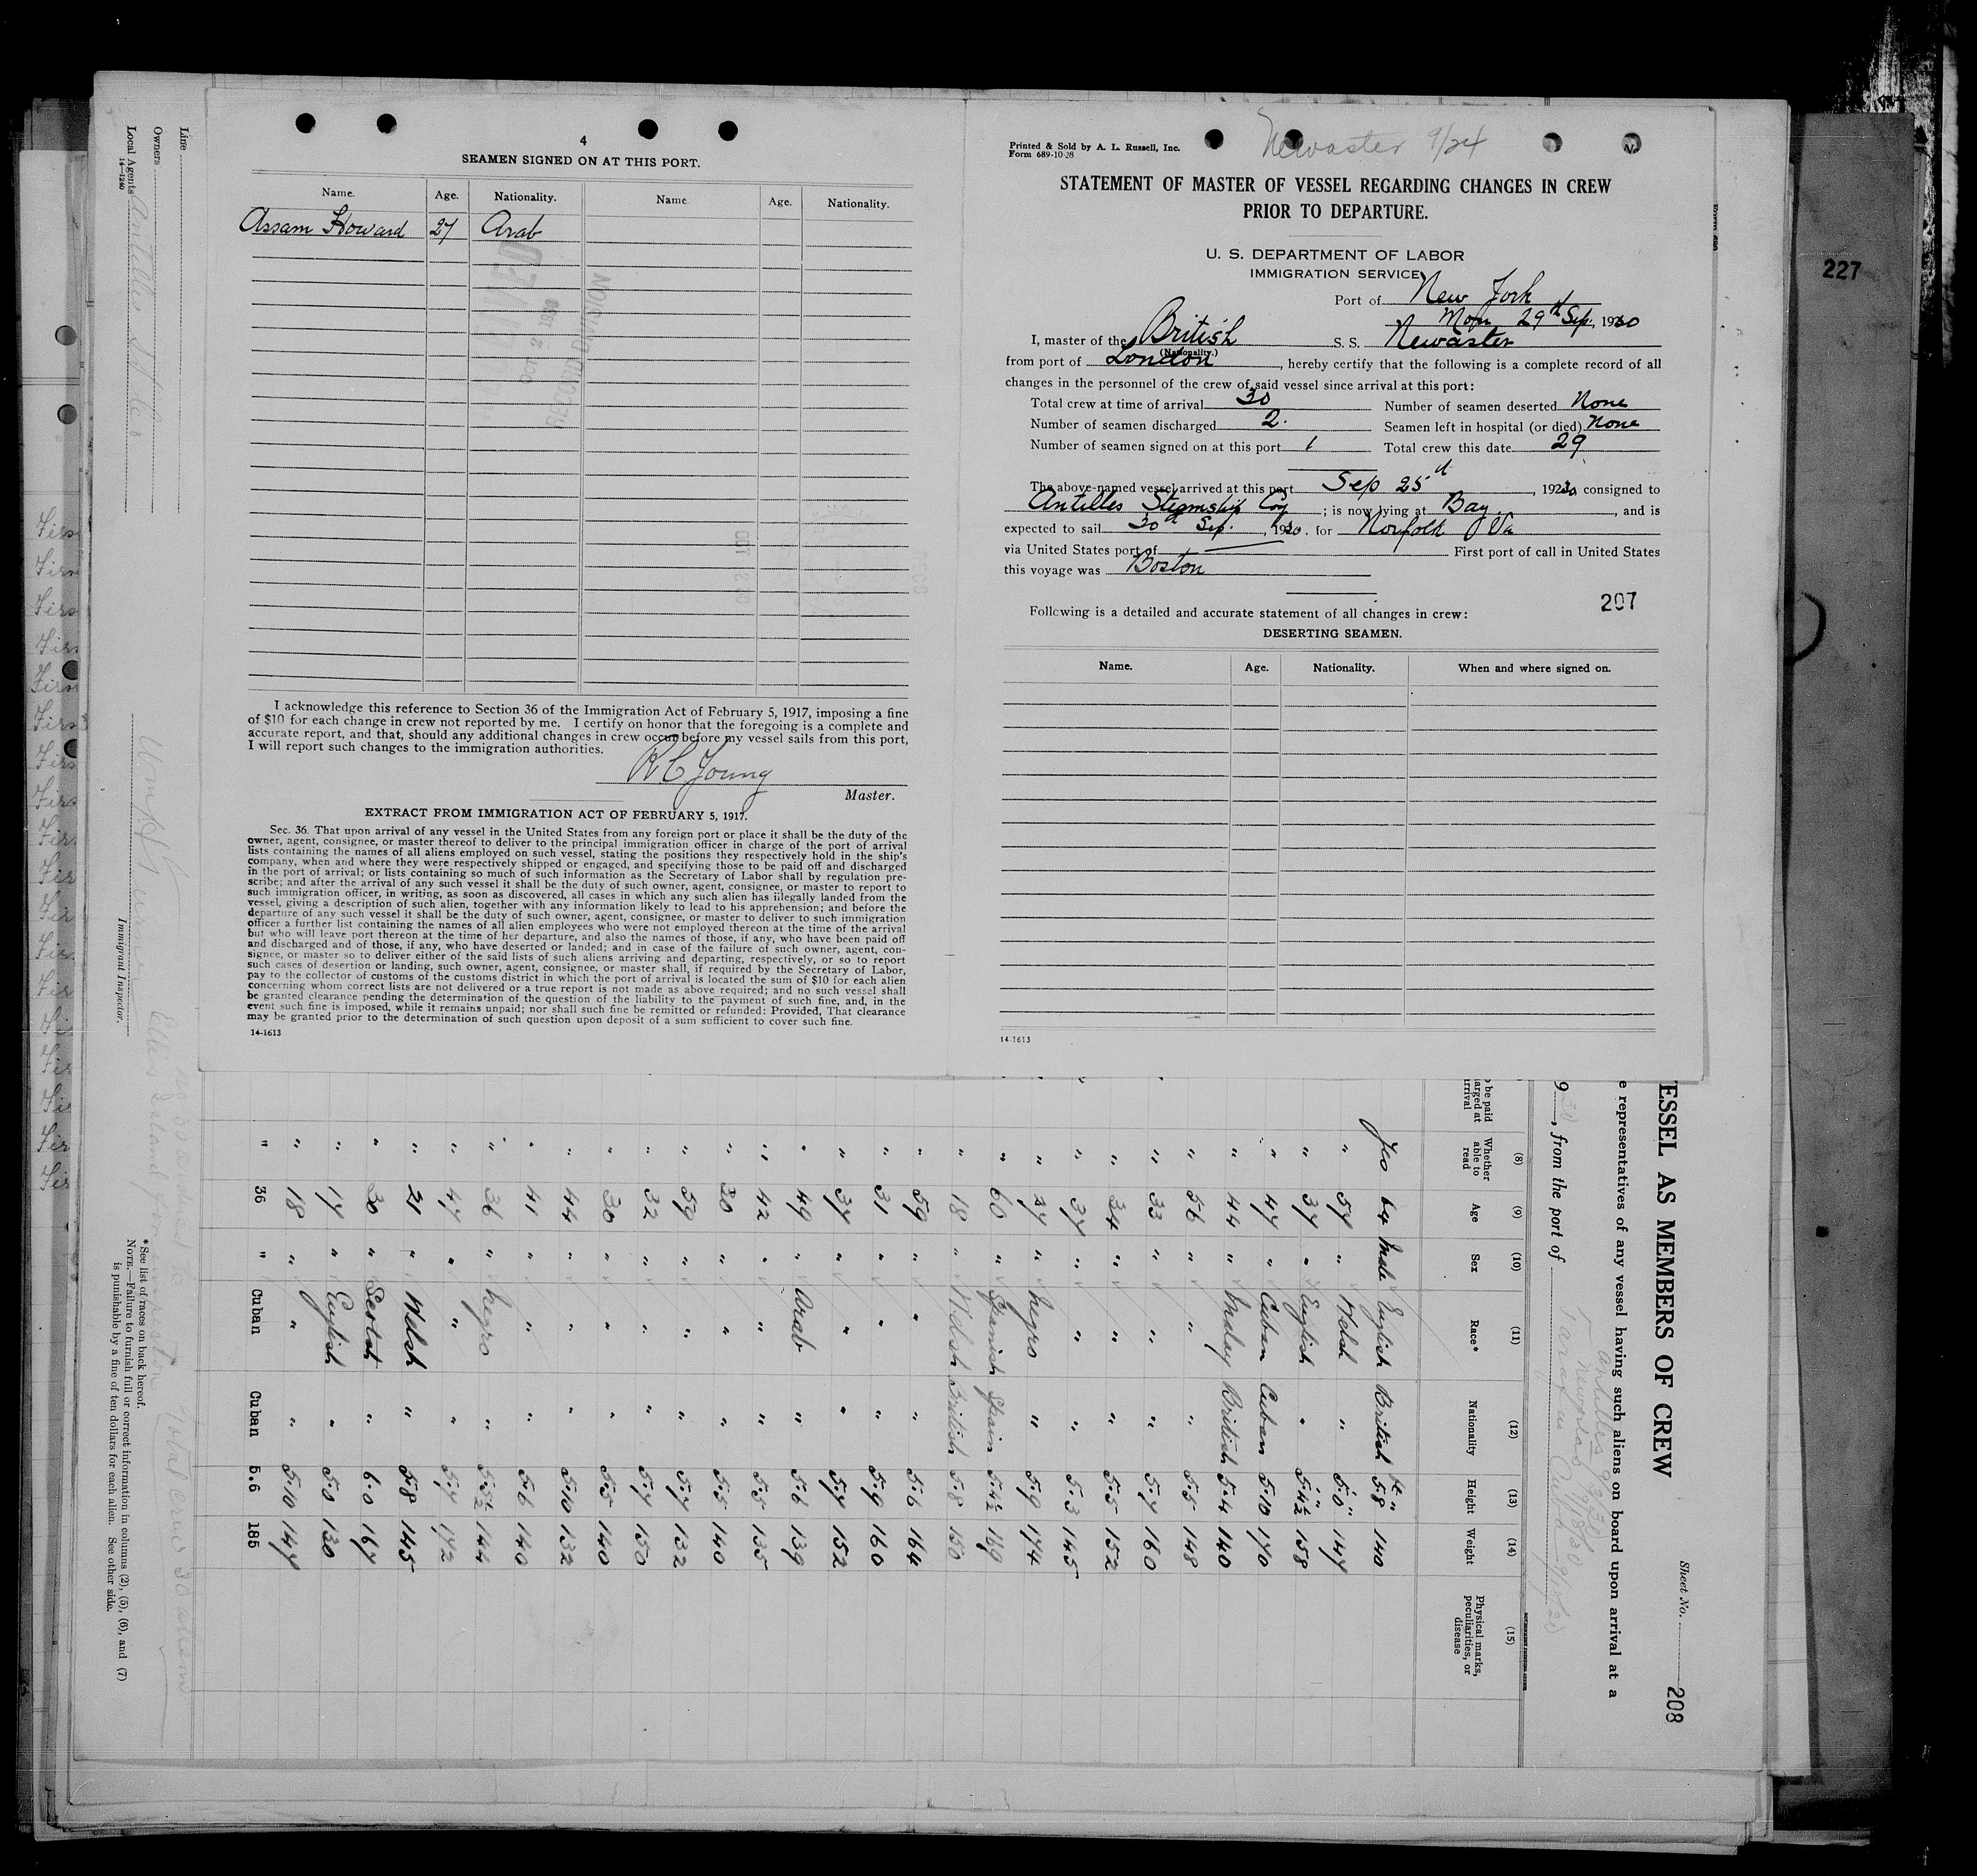 4
SEAMEN SIGNED ON AT THIS PORT.
Name. Age. Nationality. Name. Age. Nationality.
Assam Howard 27 Arab
OCT 2 1930
RECORD DIVISION
I acknowledge this reference to Section 36 of the Immigration Act of February 5, 1917, imposing a fine
of $10 for each change in crew not reported by me. I certify on honor that the foregoing is a complete and
accurate report, and that, should any additional changes in crew occur before my vessel sails from this port,
I will report such changes to the immigration authorities.
R C Young
Master.
EXTRACT FROM IMMIGRATION ACT OF FEBRUARY 5, 1917.
Sec. 36. That upon arrival of any vessel in the United States from any foreign port or place it shall be the duty of the
owner, agent, consignee, or master thereof to deliver to the principal immigration officer in charge of the port of arrival
lists containing the names of all aliens employed on such vessel, stating the positions they respectively hold in the ship's
company, when and where they were respectively shipped or engaged, and specifying those to be paid off and discharged
in the port of arrival; or lists containing so much of such information as the Secretary of Labor shall by regulation pre-
scribe; and after the arrival of any such vessel it shall be the duty of such owner, agent, consignee, or master to report to
such immigration officer, in writing, as soon as discovered, all cases in which any such alien has illegally landed from the
vessel, giving a description of such alien, together with any information likely to lead to his apprehension; and before the
departure of any such vessel it shall be the duty of such owner, agent, consignee, or master to deliver to such immigration
officer a further list containing the names of all alien employees who were not employed thereon at the time of the arrival
but who will leave port thereon at the time of her departure, and also the names of those, if any, who have been paid off
and discharged and of those, if any, who have deserted or landed; and in case of the failure of such owner, agent, con-
signee, or master so to deliver either of the said lists of such aliens arriving and departing, respectively, or so to report
such cases of desertion or landing, such owner, agent, consignee, or master shall, if required by the Secretary of Labor,
pay to the collector of customs of the customs district in which the port of arrival is located the sum of $10 for each alien
concerning whom correct lists are not delivered or a true report is not made as above required; and no such vessel shall
be granted clearance pending the determination of the question of the liability to the payment of such fine, and, in the
event such fine is imposed, while it remains unpaid; nor shall such fine be remitted or refunded: Provided, That clearance
may be granted prior to the determination of such question upon deposit of a sum sufficient to cover such fine.
14-1613
Printed & Sold by A. L. Russell, Inc.
Form 689-10-28
Newaster 9/24
STATEMENT OF MASTER OF VESSEL REGARDING CHANGES IN CREW
PRIOR TO DEPARTURE.
U. S. DEPARTMENT OF LABOR
IMMIGRATION SERVICE
Port of New York
Mon 29th Sep, 1930
I, master of the British S. S. Newaster
(Nationality.)
from port of London, hereby certify that the following is a complete record of all
changes in the personnel of the crew of said vessel since arrival at this port:
Total crew at time of arrival 30 Number of seamen deserted None
Number of seamen discharged 2. Seamen left in hospital (or died) None
Number of seamen signed on at this port 1 Total crew this date 29
The above-named vessel arrived at this port Sep 25th, 1930 consigned to
Antilles Steamship Coy; is now lying at Bay, and is
expected to sail 30th Sep. 1930. for Norfolk Va
via United States port of First port of call in United States
this voyage was Boston
207
Following is a detailed and accurate statement of all changes in crew:
DESERTING SEAMEN.
Name. Age. Nationality. When and where signed on.
14-1613
227
ESSEL AS MEMBERS OF CREW
Sheet No. 208
e representatives of any vessel having such aliens on board upon arrival at a
9 30, from the port of
(8) (9) (10) (11) (12) (13) (14) (15)
Whether able to read Age Sex Race* Nationality Height Weight Physical marks, peculiarities, or disease
Yes 64 Male English British 5.8 140
" 57 " Welsh " 5.0 147
" 37 " English " 5.4½ 158
" 47 " Cuban Cuban 5.10 170
" 44 " Malay British 5.4 140
" 56 " " " 5.5 148
" 33 " " " 5.7 160
" 34 " " " 5.5 152
" 37 " " " 5.3 145
" 27 " Negro " 5.9 174
" 60 " Spanish Spain 5.4½ 169
" 18 " Welsh British 5.8 150
" 59 " " " 5.6 164
" 31 " " " 5.9 160
" 37 " " " 5.7 152
" 49 " Arab " 5.6 139
" 42 " " " 5.5 135
" 30 " " " 5.5 140
" 59 " " " 5.7 132
" 32 " " " 5.7 150
" 30 " " " 5.5 140
" 44 " " " 5.10 132
" 41 " " " 5.6 140
" 36 " Negro " 5.5½ 144
" 47 " " " 5.7 172
" 21 " Welsh " 5.8 145
" 30 " Scotch " 6.0 167
" 17 " English " 5.0 130
" 18 " " " 5.10 147
" 36 " Cuban Cuban 5.6 185
*See list of races on back hereof.
NOTE.—Failure to furnish full or correct information in columns (2), (5), (6), and (7)
is punishable by a fine of ten dollars for each alien. See other side.
Total crew 30 aliens
Line
Owners
Local Agents Antilles S S Co
14-1240
Immigrant Inspector.